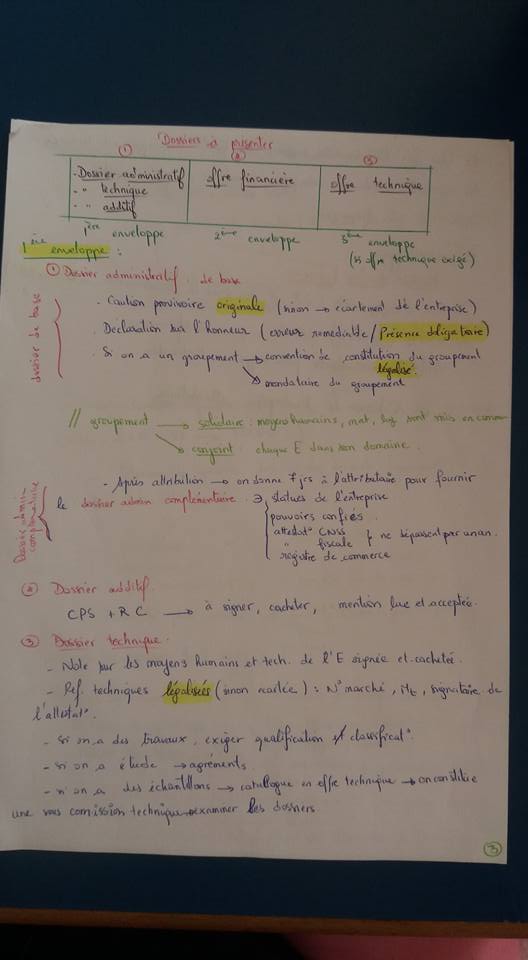 Dossiers à présenter
① ② ③
- Dossier administratif offre financière offre technique
- " technique
- " additif
1ère enveloppe 2ème enveloppe 3ème enveloppe
(si offre technique exigé)
1ère enveloppe :
① Dossier administratif de base
dossier de base
- Caution provisoire originale (sinon → écartement de l'entreprise)
- Déclaration sur l'honneur (erreur remédiable / Présence obligatoire)
- Si on a un groupement → convention de constitution du groupement
légalisé.
→ mandataire du groupement
// groupement → solidaire : moyens humains, mat, sont mis en commun
→ conjoint : chaque E dans son domaine.
Dossier admin complémentaire
- Après attribution → on donne 7 jrs à l'attributaire pour fournir
le dossier admin complémentaire. statues de l'entreprise
pouvoirs confiés
attestat° CNSS
" fiscale ne dépassent pas un an.
registre de commerce
② Dossier additif.
CPS + RC → à signer, cacheter, mention lue et acceptée.
③ Dossier technique.
- Note sur les moyens humains et tech. de l'E signée et cachetée.
- Réf. techniques légalisées (sinon écartée) : N° marché, Mt, signataire de
l'attestat°.
- Si on a des travaux, exiger qualification et classificat°
- Si on a étude → agréments
- Si on a des échantillons → catalogue en offre technique → on constitue
une sous comission technique → examiner les dossiers.
③